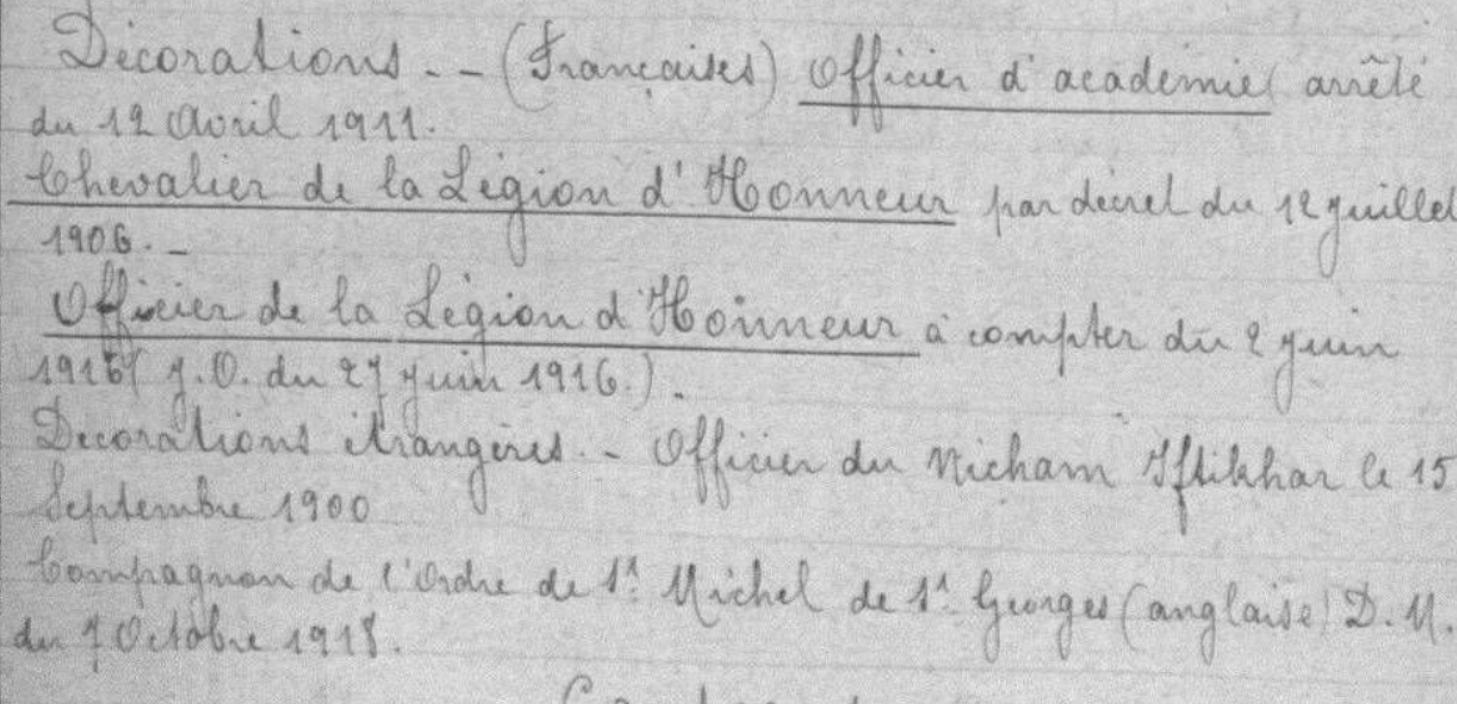 Décorations. - (Françaises) Officier d'académie (arrêté
du 12 Avril 1911.
Chevalier de la Légion d'Honneur par décret du 12 juillet
1906. -
Officier de la Légion d'Honneur à compter du 2 juin
1916 (J.O. du 27 juin 1916.).
Décorations étrangères. - Officier du Nicham Iftikhar le 15
Septembre 1900
Compagnon de l'Ordre de St. Michel de St. Georges (anglaise) D.M.
du 7 Octobre 1918.